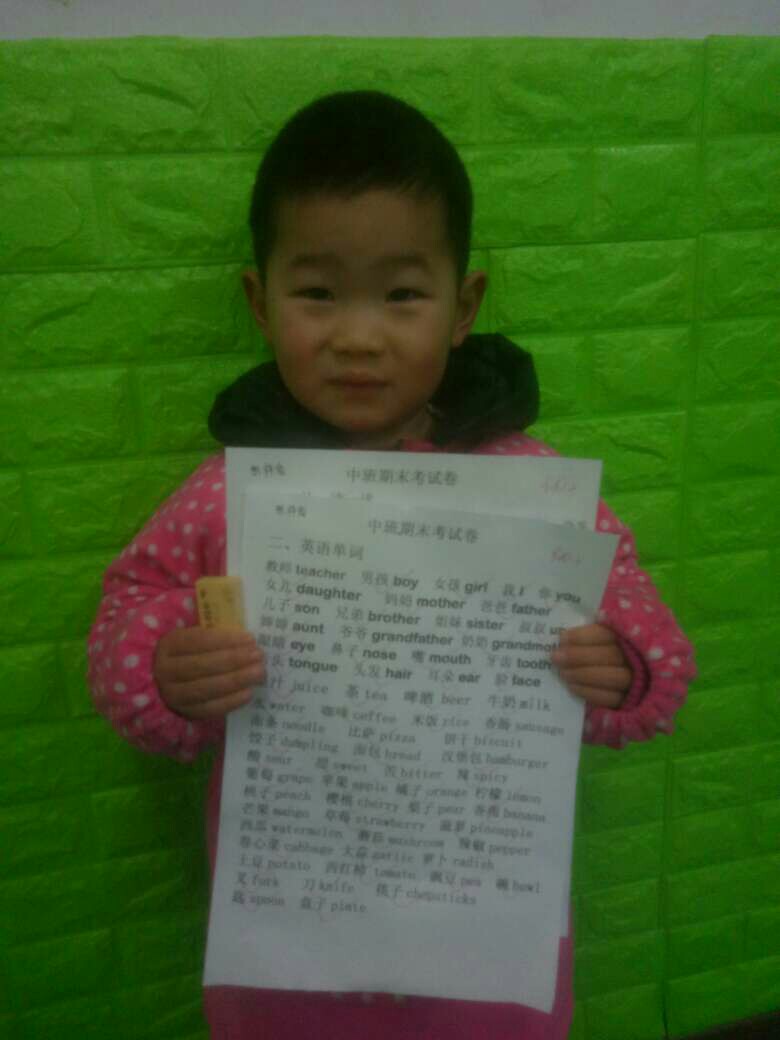 中班期末考试卷
中班期末考试卷
二、英语单词
教师 teacher 男孩 boy 女孩 girl 我 I 你 you
女儿 daughter 妈妈 mother 爸爸 father
儿子 son 兄弟 brother 姐妹 sister 叔叔 un
婶婶 aunt 爷爷 grandfather 奶奶 grandmot
眼睛 eye 鼻子 nose 嘴 mouth 牙齿 tooth
头 tongue 头发 hair 耳朵 ear 脸 face
汁 juice 茶 tea 啤酒 beer 牛奶 milk
水 water 咖啡 coffee 米饭 rice 香肠 sausage
面条 noodle 比萨 pizza 饼干 biscuit
饺子 dumpling 面包 bread 汉堡包 hamburger
酸 sour 甜 sweet 苦 bitter 辣 spicy
葡萄 grape 苹果 apple 橘子 orange 柠檬 lemon
桃子 peach 樱桃 cherry 梨子 pear 香蕉 banana
芒果 mango 草莓 strawberry 菠萝 pineapple
西瓜 watermelon 蘑菇 mushroom 辣椒 pepper
卷心菜 cabbage 大蒜 garlic 萝卜 radish
土豆 potato 西红柿 tomato 豌豆 pea 碗 bowl
叉 fork 刀 knife 筷子 chopsticks
匙 spoon 盘子 plate